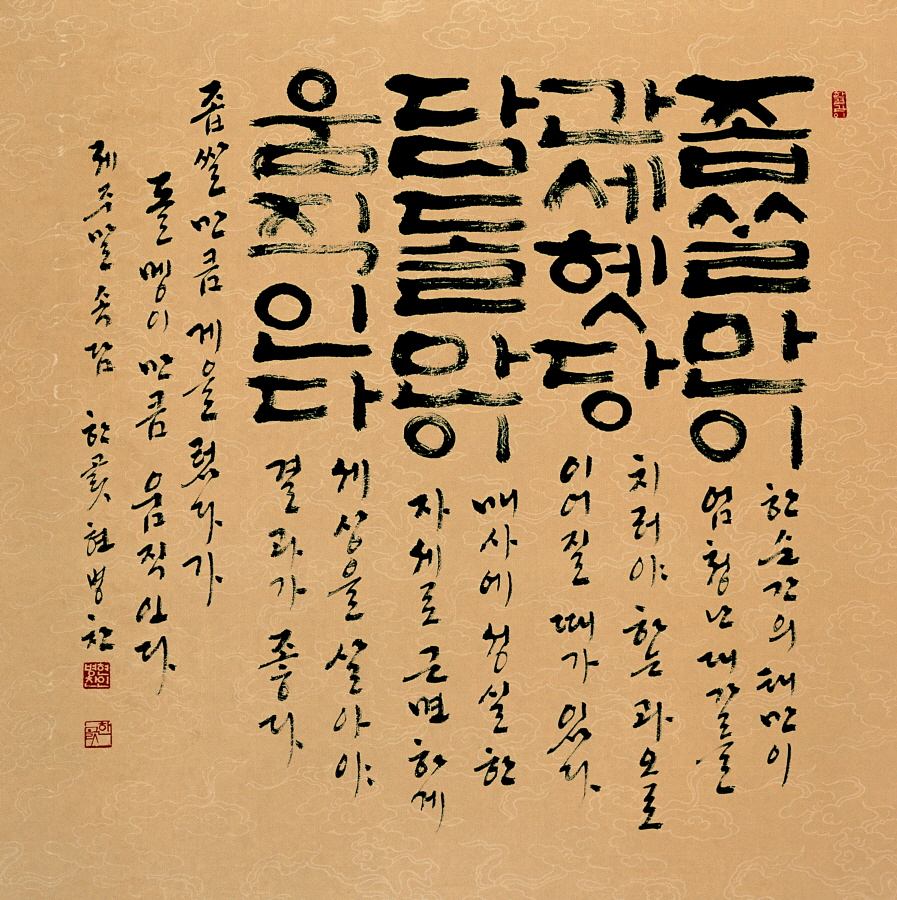 좁ᄊᆞᆯ만이
과세헷당
담돌만이
움직인다
한순간의 태만이
엄청난 대가를
치러야 하는 과오로
이어질 때가 있다.
매사에 성실한
자세로 근면하게
세상을 살아야
결과가 좋다.
좁쌀만큼 게을렀다가
돌멩이만큼 움직인다.
제주말 속담 한곬 현병찬